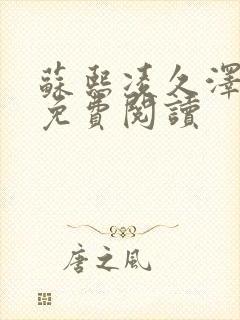 蘇熙凌久澤
免費閱讀
唐之風